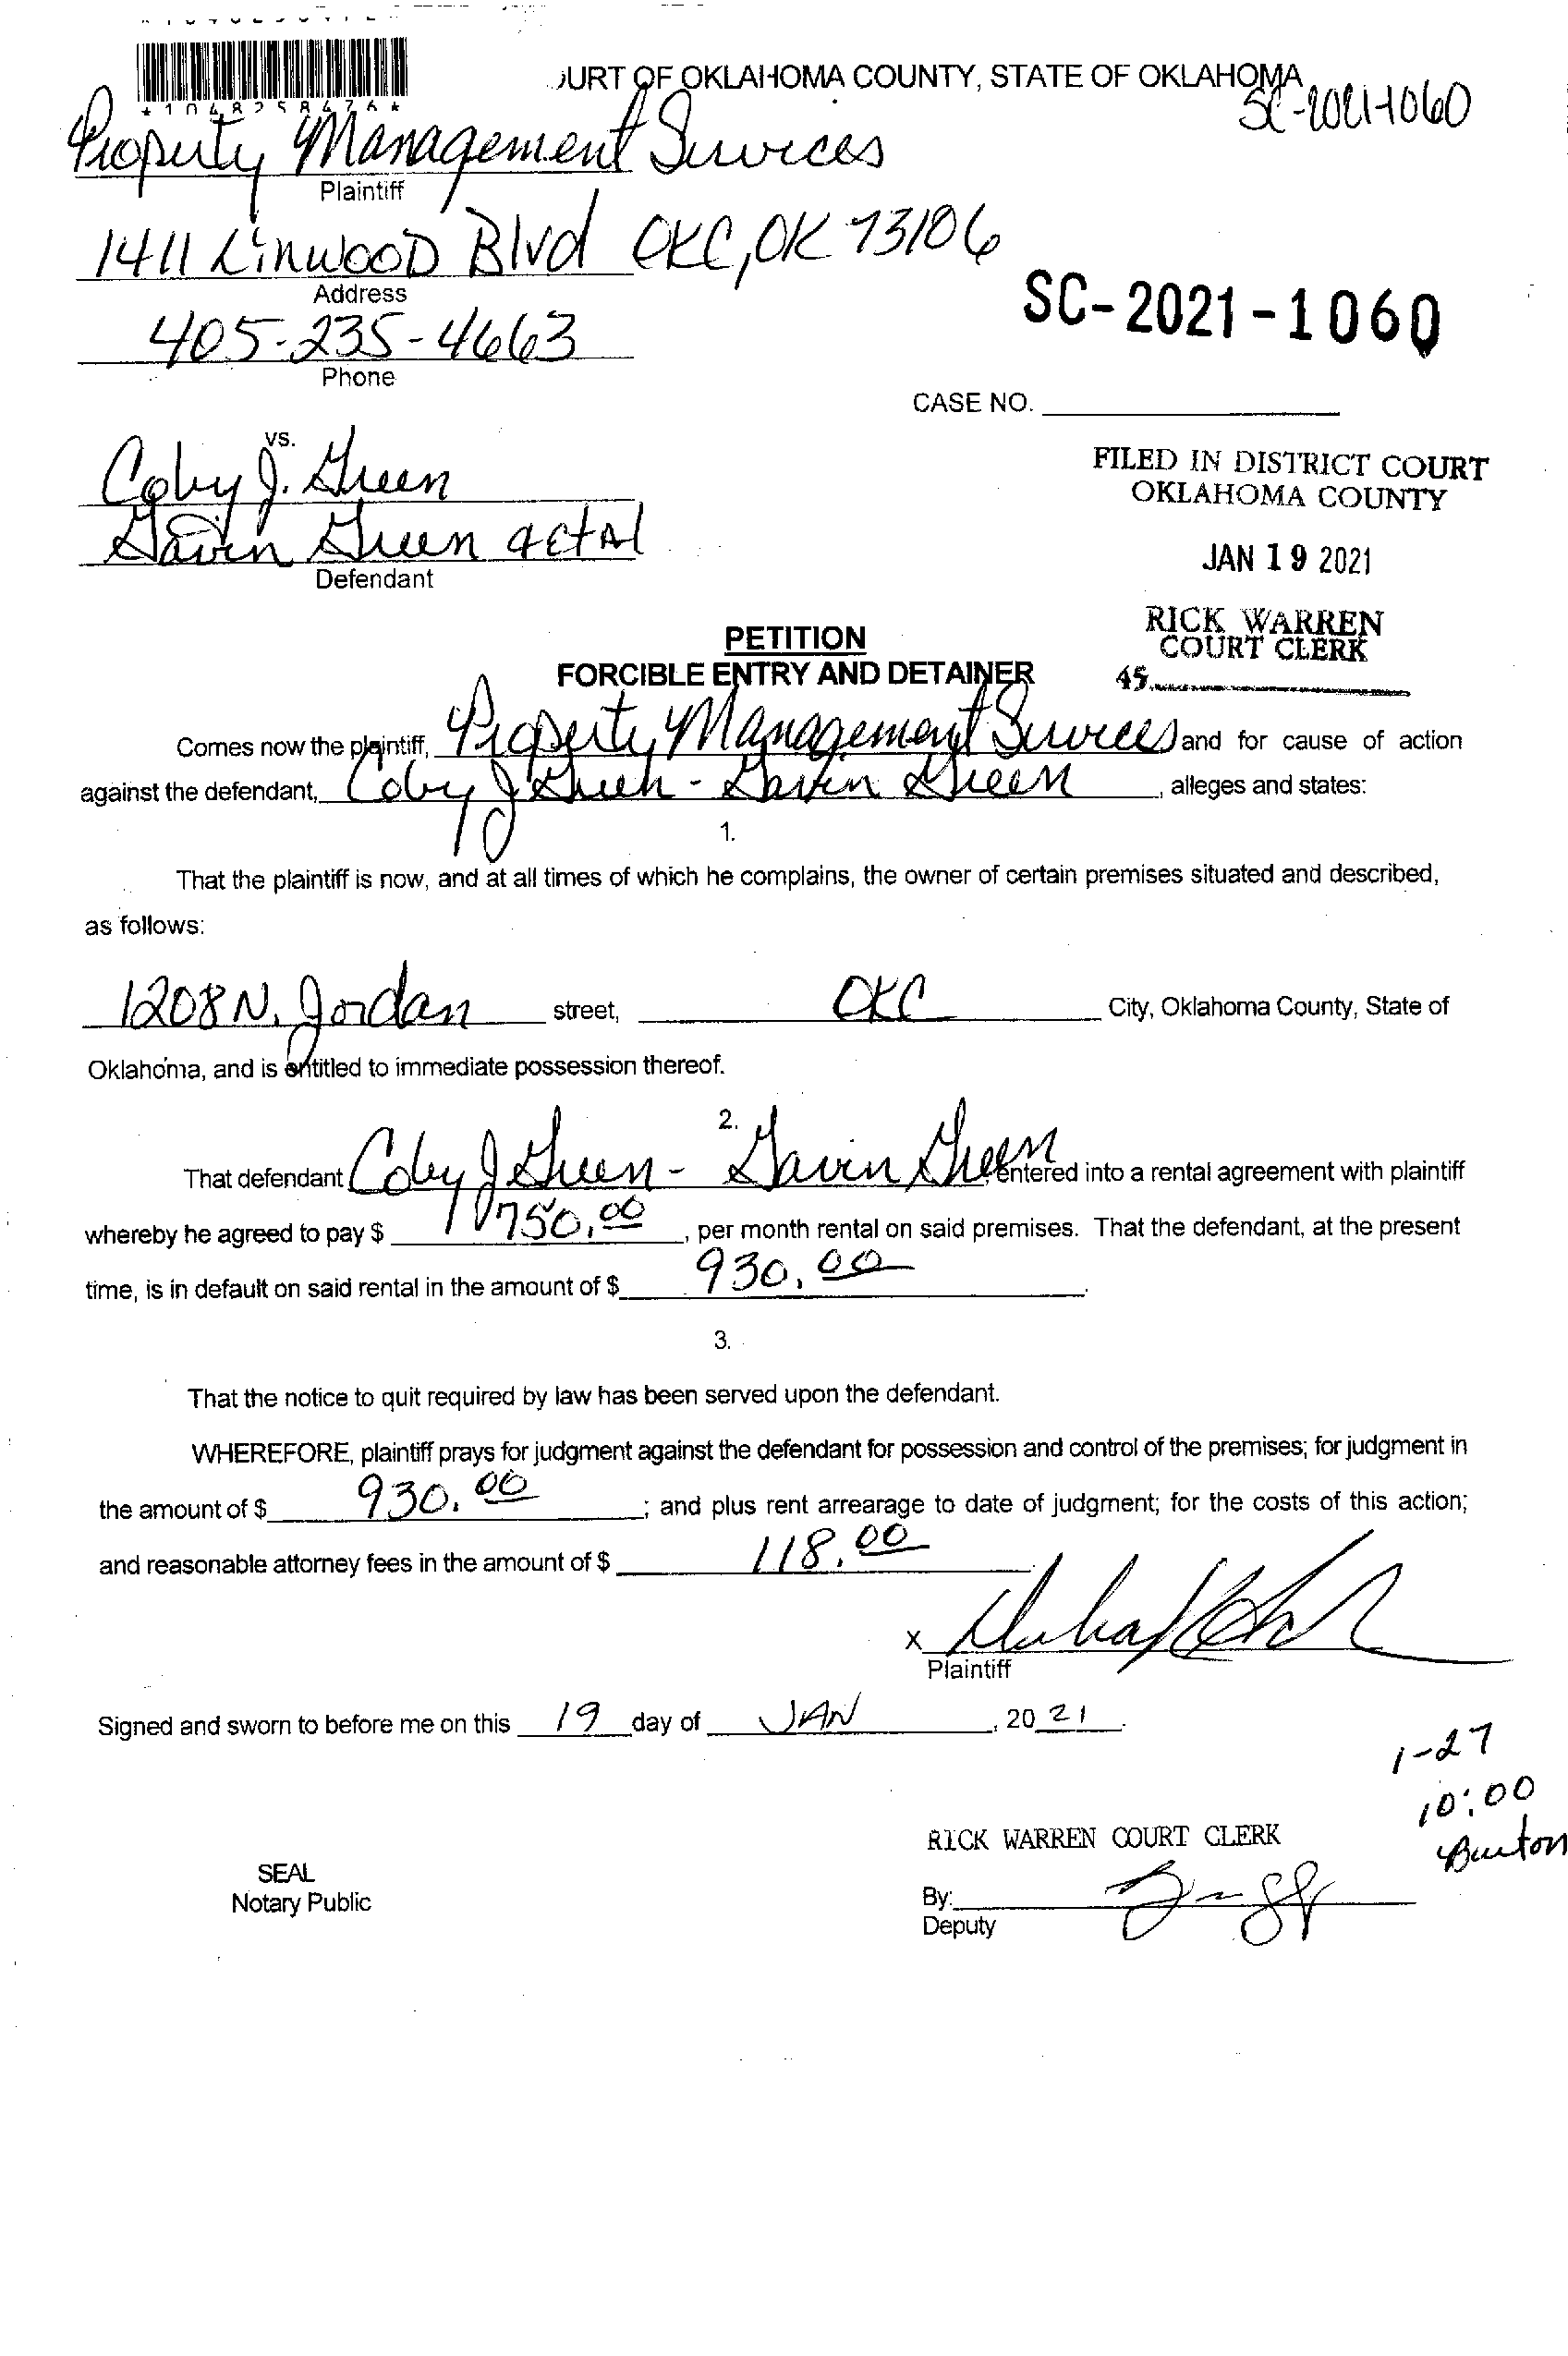 *1048258476*
URT OF OKLAHOMA COUNTY, STATE OF OKLAHOMA
SC-2021-1060
Property Management Services
Plaintiff
1411 Linwood Blvd OKC, OK 73106
Address
SC-2021-1060
405-235-4663
Phone
CASE NO.
vs.
Coby J. Green
Gavin Green
Defendant
FILED IN DISTRICT COURT
OKLAHOMA COUNTY
JAN 19 2021
RICK WARREN
COURT CLERK
45
PETITION
FORCIBLE ENTRY AND DETAINER
Comes now the plaintiff, Property Management Services and for cause of action
against the defendant, Coby J Green - Gavin Green, alleges and states:
1.
That the plaintiff is now, and at all times of which he complains, the owner of certain premises situated and described,
as follows:
1208 N. Jordan street, OKC City, Oklahoma County, State of
Oklahoma, and is entitled to immediate possession thereof.
2.
That defendant Coby J Green - Gavin Green, entered into a rental agreement with plaintiff
whereby he agreed to pay $ 750.00, per month rental on said premises. That the defendant, at the present
time, is in default on said rental in the amount of $ 930.00.
3.
That the notice to quit required by law has been served upon the defendant.
WHEREFORE, plaintiff prays for judgment against the defendant for possession and control of the premises; for judgment in
the amount of $ 930.00; and plus rent arrearage to date of judgment; for the costs of this action;
and reasonable attorney fees in the amount of $ 118.00.
X
Plaintiff
Signed and sworn to before me on this 19 day of JAN, 20 21.
1-27
10:00
Burton
RICK WARREN COURT CLERK
SEAL
Notary Public
By:
Deputy